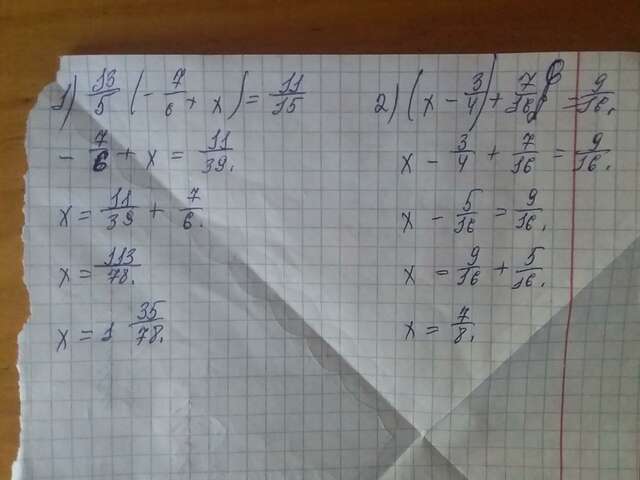 1) 13/5 (- 7/6 + x) = 11/15
- 7/6 + x = 11/39.
x = 11/39 + 7/6.
x = 113/78.
x = 1 35/78.
2) (x - 3/4) + 7/16 = 9/16.
x - 3/4 + 7/16 = 9/16.
x - 5/16 = 9/16.
x = 9/16 + 5/16.
x = 7/8.